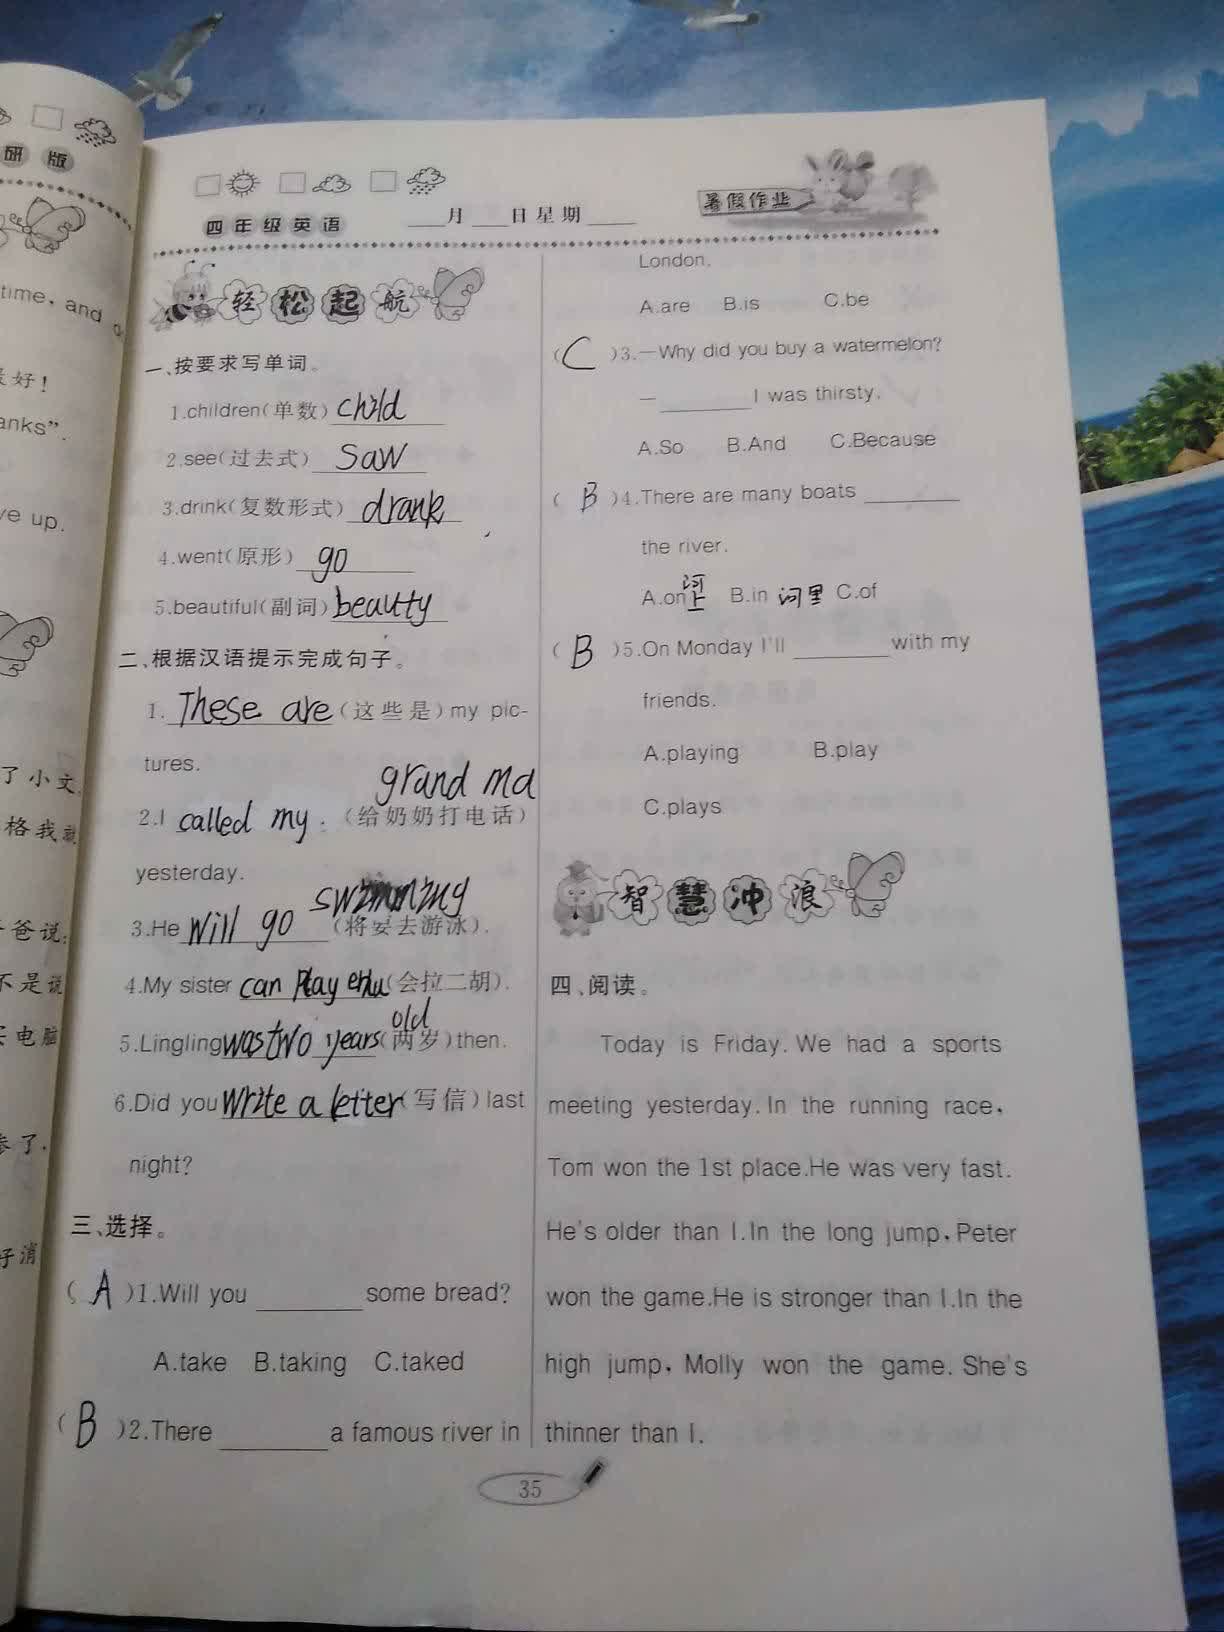 研版
time, and
最好！
anks”.
ve up.
了小文
格我就
爸说：
不是说
买电脑
参了，
好消
四年级英语
___月___日星期____
暑假作业
轻松起航
一、按要求写单词。
1.children(单数) child
2.see(过去式) saw
3.drink(复数形式) drank
4.went(原形) go
5.beautiful(副词) beautty
二、根据汉语提示完成句子。
1. These are (这些是)my pic-
tures.
grand ma
2.I called my . (给奶奶打电话)
yesterday.
swimming
3.He will go (将要去游泳).
4.My sister can play erhu (会拉二胡).
old
5.Lingling was two years (两岁)then.
6.Did you write a letter (写信)last
night?
三、选择。
( A )1.Will you ________ some bread?
A.take B.taking C.taked
( B )2.There ________ a famous river in
London.
A.are B.is C.be
( C )3.—Why did you buy a watermelon?
— ________ I was thirsty.
A.So B.And C.Because
( B )4.There are many boats ________
the river.
A.on 河上 B.in 河里 C.of
( B )5.On Monday I'll ________ with my
friends.
A.playing B.play
C.plays
智慧冲浪
四、阅读。
Today is Friday. We had a sports
meeting yesterday. In the running race,
Tom won the 1st place.He was very fast.
He's older than I.In the long jump, Peter
won the game.He is stronger than I.In the
high jump, Molly won the game. She's
thinner than I.
35